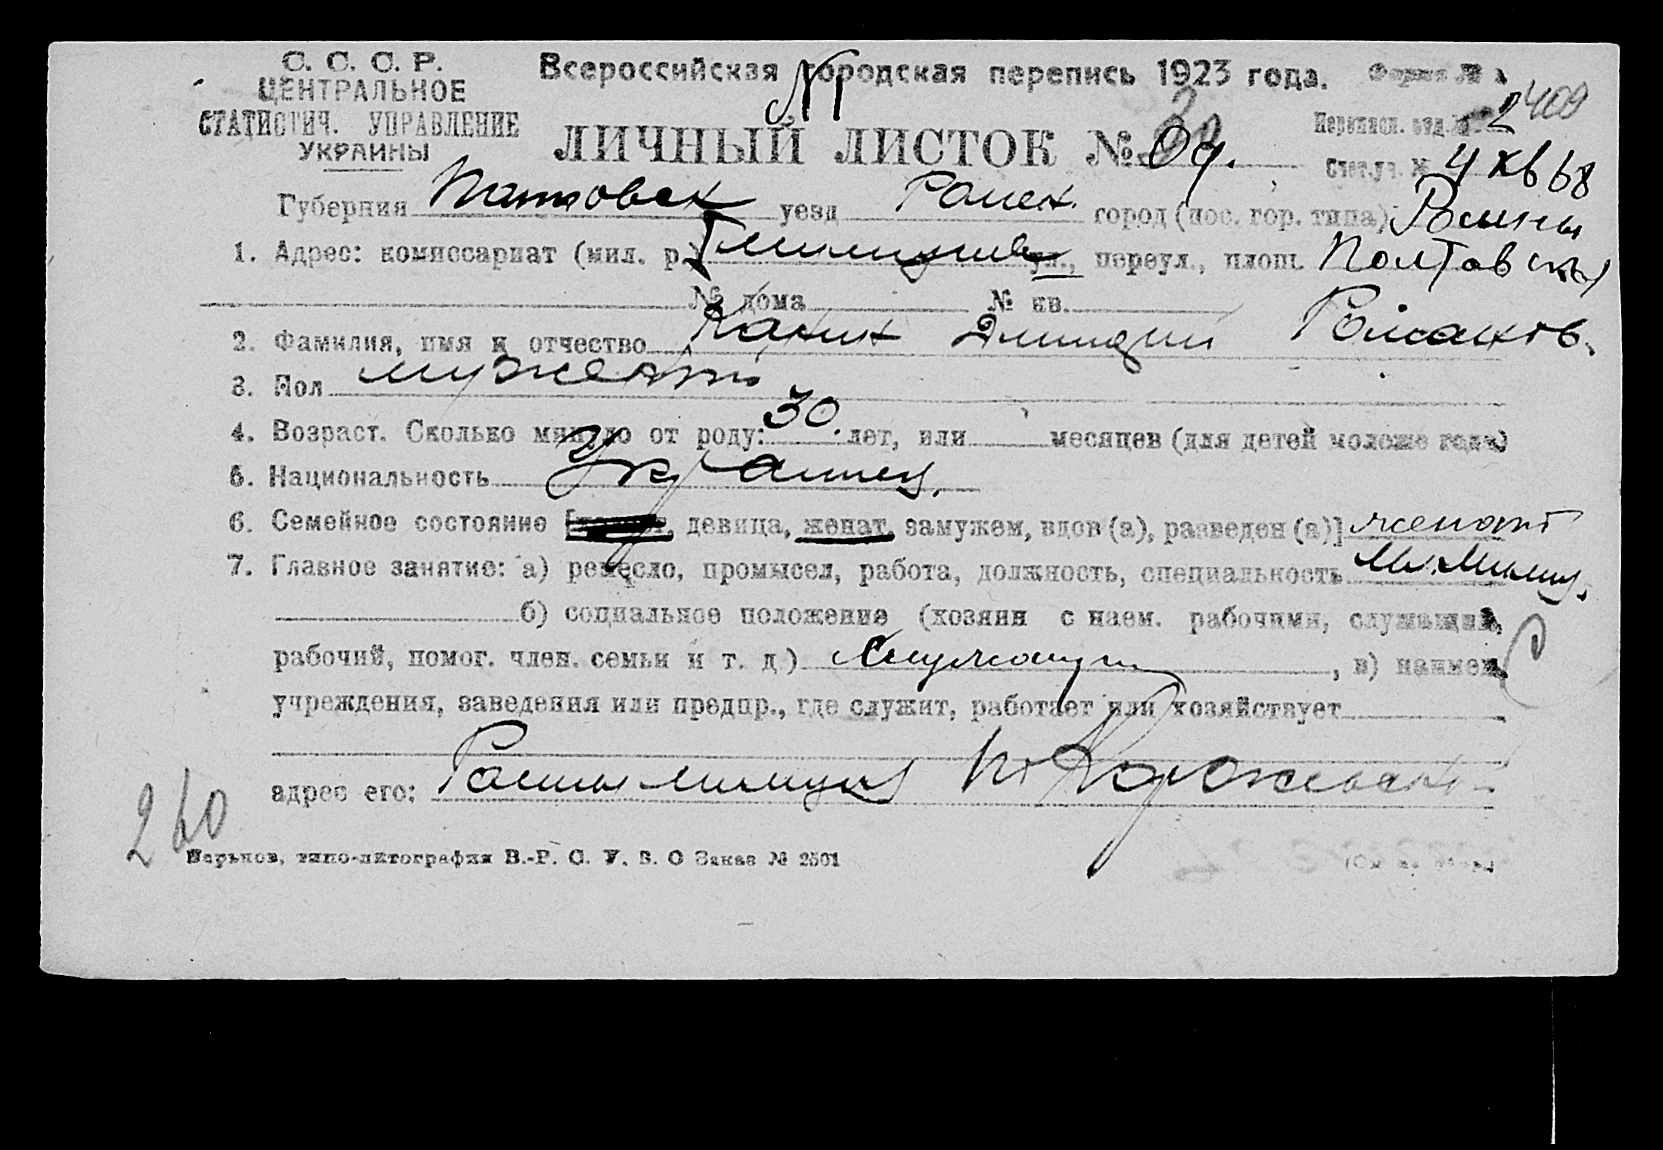 С. С. С. Р.
ЦЕНТРАЛЬНОЕ
СТАТИСТИЧ. УПРАВЛЕНИЕ
УКРАИНЫ
Всероссийская городская перепись 1923 года. Форма №
2409
Переписн. отд. № 2
ЛИЧНЫЙ ЛИСТОК №
Счет.уч. № 4 кв 68
Губерния уезд Ромен. город (пос. гор. типа) Ромны
1. Адрес: комиссариат (мил. р.) ул., переул., площ. Полтавская
№ дома № кв.
2. Фамилия, имя и отчество Дмитрий Романов.
3. Пол мужской
4. Возраст. Сколько минуло от роду: 30 лет, или месяцев (для детей моложе года)
5. Национальность Украинец.
6. Семейное состояние [ девица, женат, замужем, вдов (а), разведен (а)] женат
7. Главное занятие: а) ремесло, промысел, работа, должность, специальность
б) социальное положение (хозяин с наем. рабочими, служащий,
рабочий, помог. член. семьи и т. д.) Служащий, в) наимен.
учреждения, заведения или предпр., где служит, работает или хозяйствует
адрес его: Ромны милиция
260
Харьков, типо-литография В.-Р. С. У. В. О Заказ № 2501